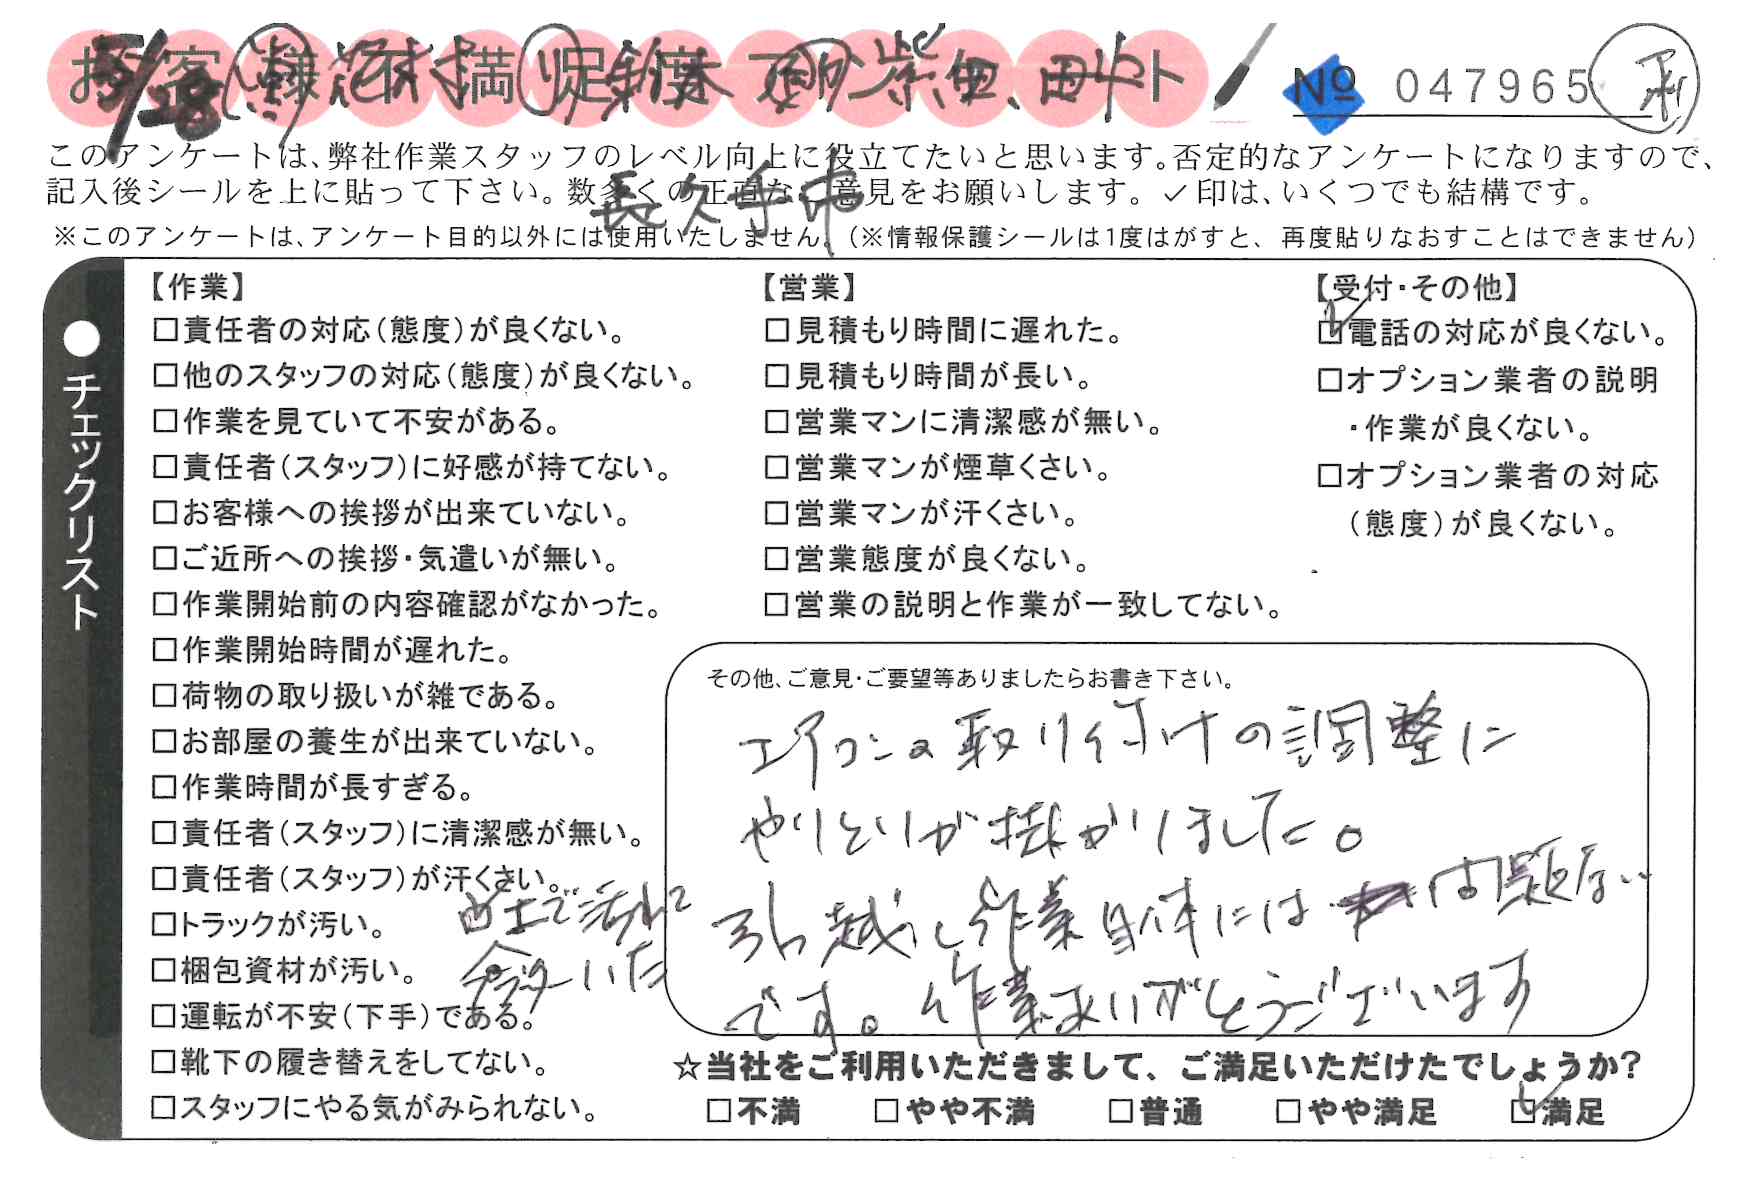 お客様不満足度アンケート
5/28
柴田、田中
№ 047965
このアンケートは、弊社作業スタッフのレベル向上に役立てたいと思います。否定的なアンケートになりますので、
記入後シールを上に貼って下さい。数多くの正直なご意見をお願いします。✓印は、いくつでも結構です。
長久手市
※このアンケートは、アンケート目的以外には使用いたしません。(※情報保護シールは1度はがすと、再度貼りなおすことはできません)
●チェックリスト
【作業】
□責任者の対応(態度)が良くない。
□他のスタッフの対応(態度)が良くない。
□作業を見ていて不安がある。
□責任者(スタッフ)に好感が持てない。
□お客様への挨拶が出来ていない。
□ご近所への挨拶・気遣いが無い。
□作業開始前の内容確認がなかった。
□作業開始時間が遅れた。
□荷物の取り扱いが雑である。
□お部屋の養生が出来ていない。
□作業時間が長すぎる。
□責任者(スタッフ)に清潔感が無い。
□責任者(スタッフ)が汗くさい。
□トラックが汚い。
□梱包資材が汚い。
□運転が不安(下手)である。
□靴下の履き替えをしてない。
□スタッフにやる気がみられない。
【営業】
□見積もり時間に遅れた。
□見積もり時間が長い。
□営業マンに清潔感が無い。
□営業マンが煙草くさい。
□営業マンが汗くさい。
□営業態度が良くない。
□営業の説明と作業が一致してない。
【受付・その他】
☑電話の対応が良くない。
□オプション業者の説明
・作業が良くない。
□オプション業者の対応
(態度)が良くない。
その他、ご意見・ご要望等ありましたらお書き下さい。
エアコンの取り付けの調整に
やりとりが掛かりました。
引っ越し作業自体には問題ない
です。作業ありがとうございます
☆当社をご利用いただきまして、ご満足いただけたでしょうか?
□不満 □やや不満 □普通 □やや満足 ☑満足